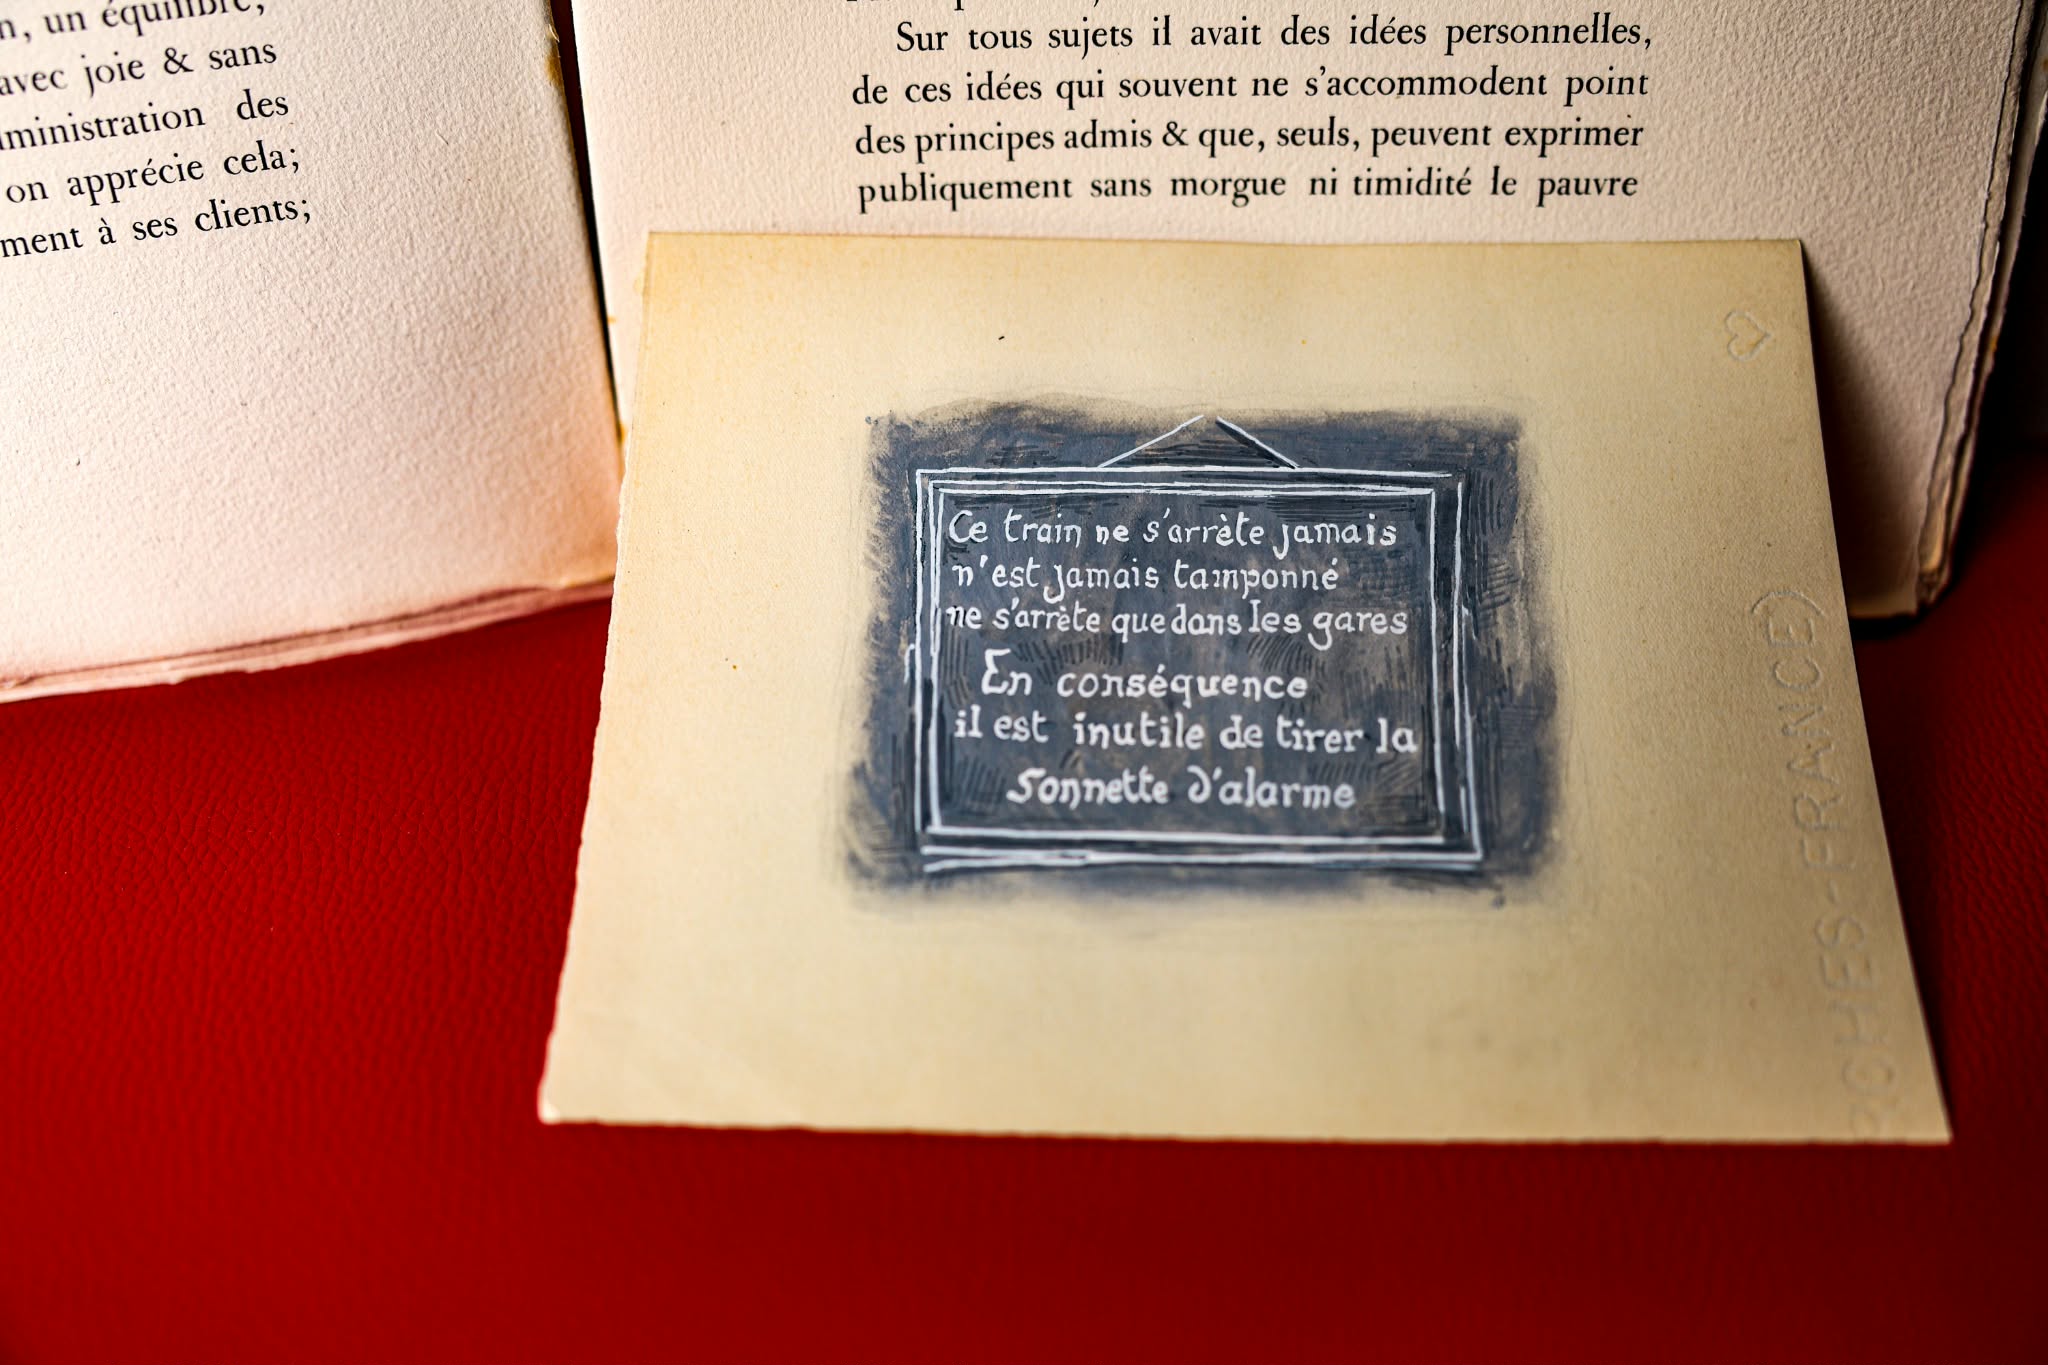 un équilibre,
avec joie & sans
des
on apprécie cela;
à ses clients;
Sur tous sujets il avait des idées personnelles,
de ces idées qui souvent ne s'accommodent point
des principes admis & que, seuls, peuvent exprimer
publiquement sans morgue ni timidité le pauvre
Ce train ne s'arrète jamais
n'est jamais tamponné
ne s'arrète que dans les gares
En conséquence
il est inutile de tirer la
Sonnette d'alarme
FRANCE)